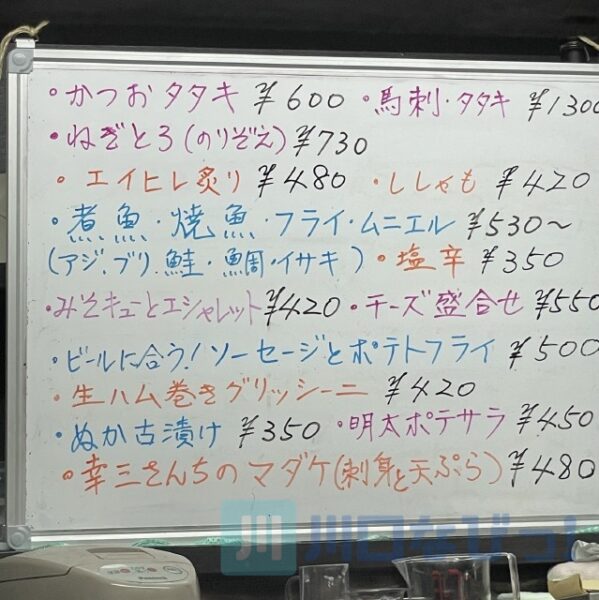 ・かつおタタキ ¥600 ・馬刺・タタキ ¥1300
・ねぎとろ(のりぞえ) ¥730
・エイヒレ炙り ¥480 ・ししゃも ¥420
・煮魚・焼魚・フライ・ムニエル ¥530〜
(アジ.ブリ.鮭・鯛・イサキ) ・塩辛 ¥350
・みそキューとエシャレット ¥420 ・チーズ盛合せ ¥550
・ビールに合う!ソーセージとポテトフライ ¥500
・生ハム巻きグリッシーニ ¥420
・ぬか古漬け ¥350 ・明太ポテサラ ¥450
・幸三さんちのマダケ(刺身と天ぷら) ¥480
川 川口なびっ!